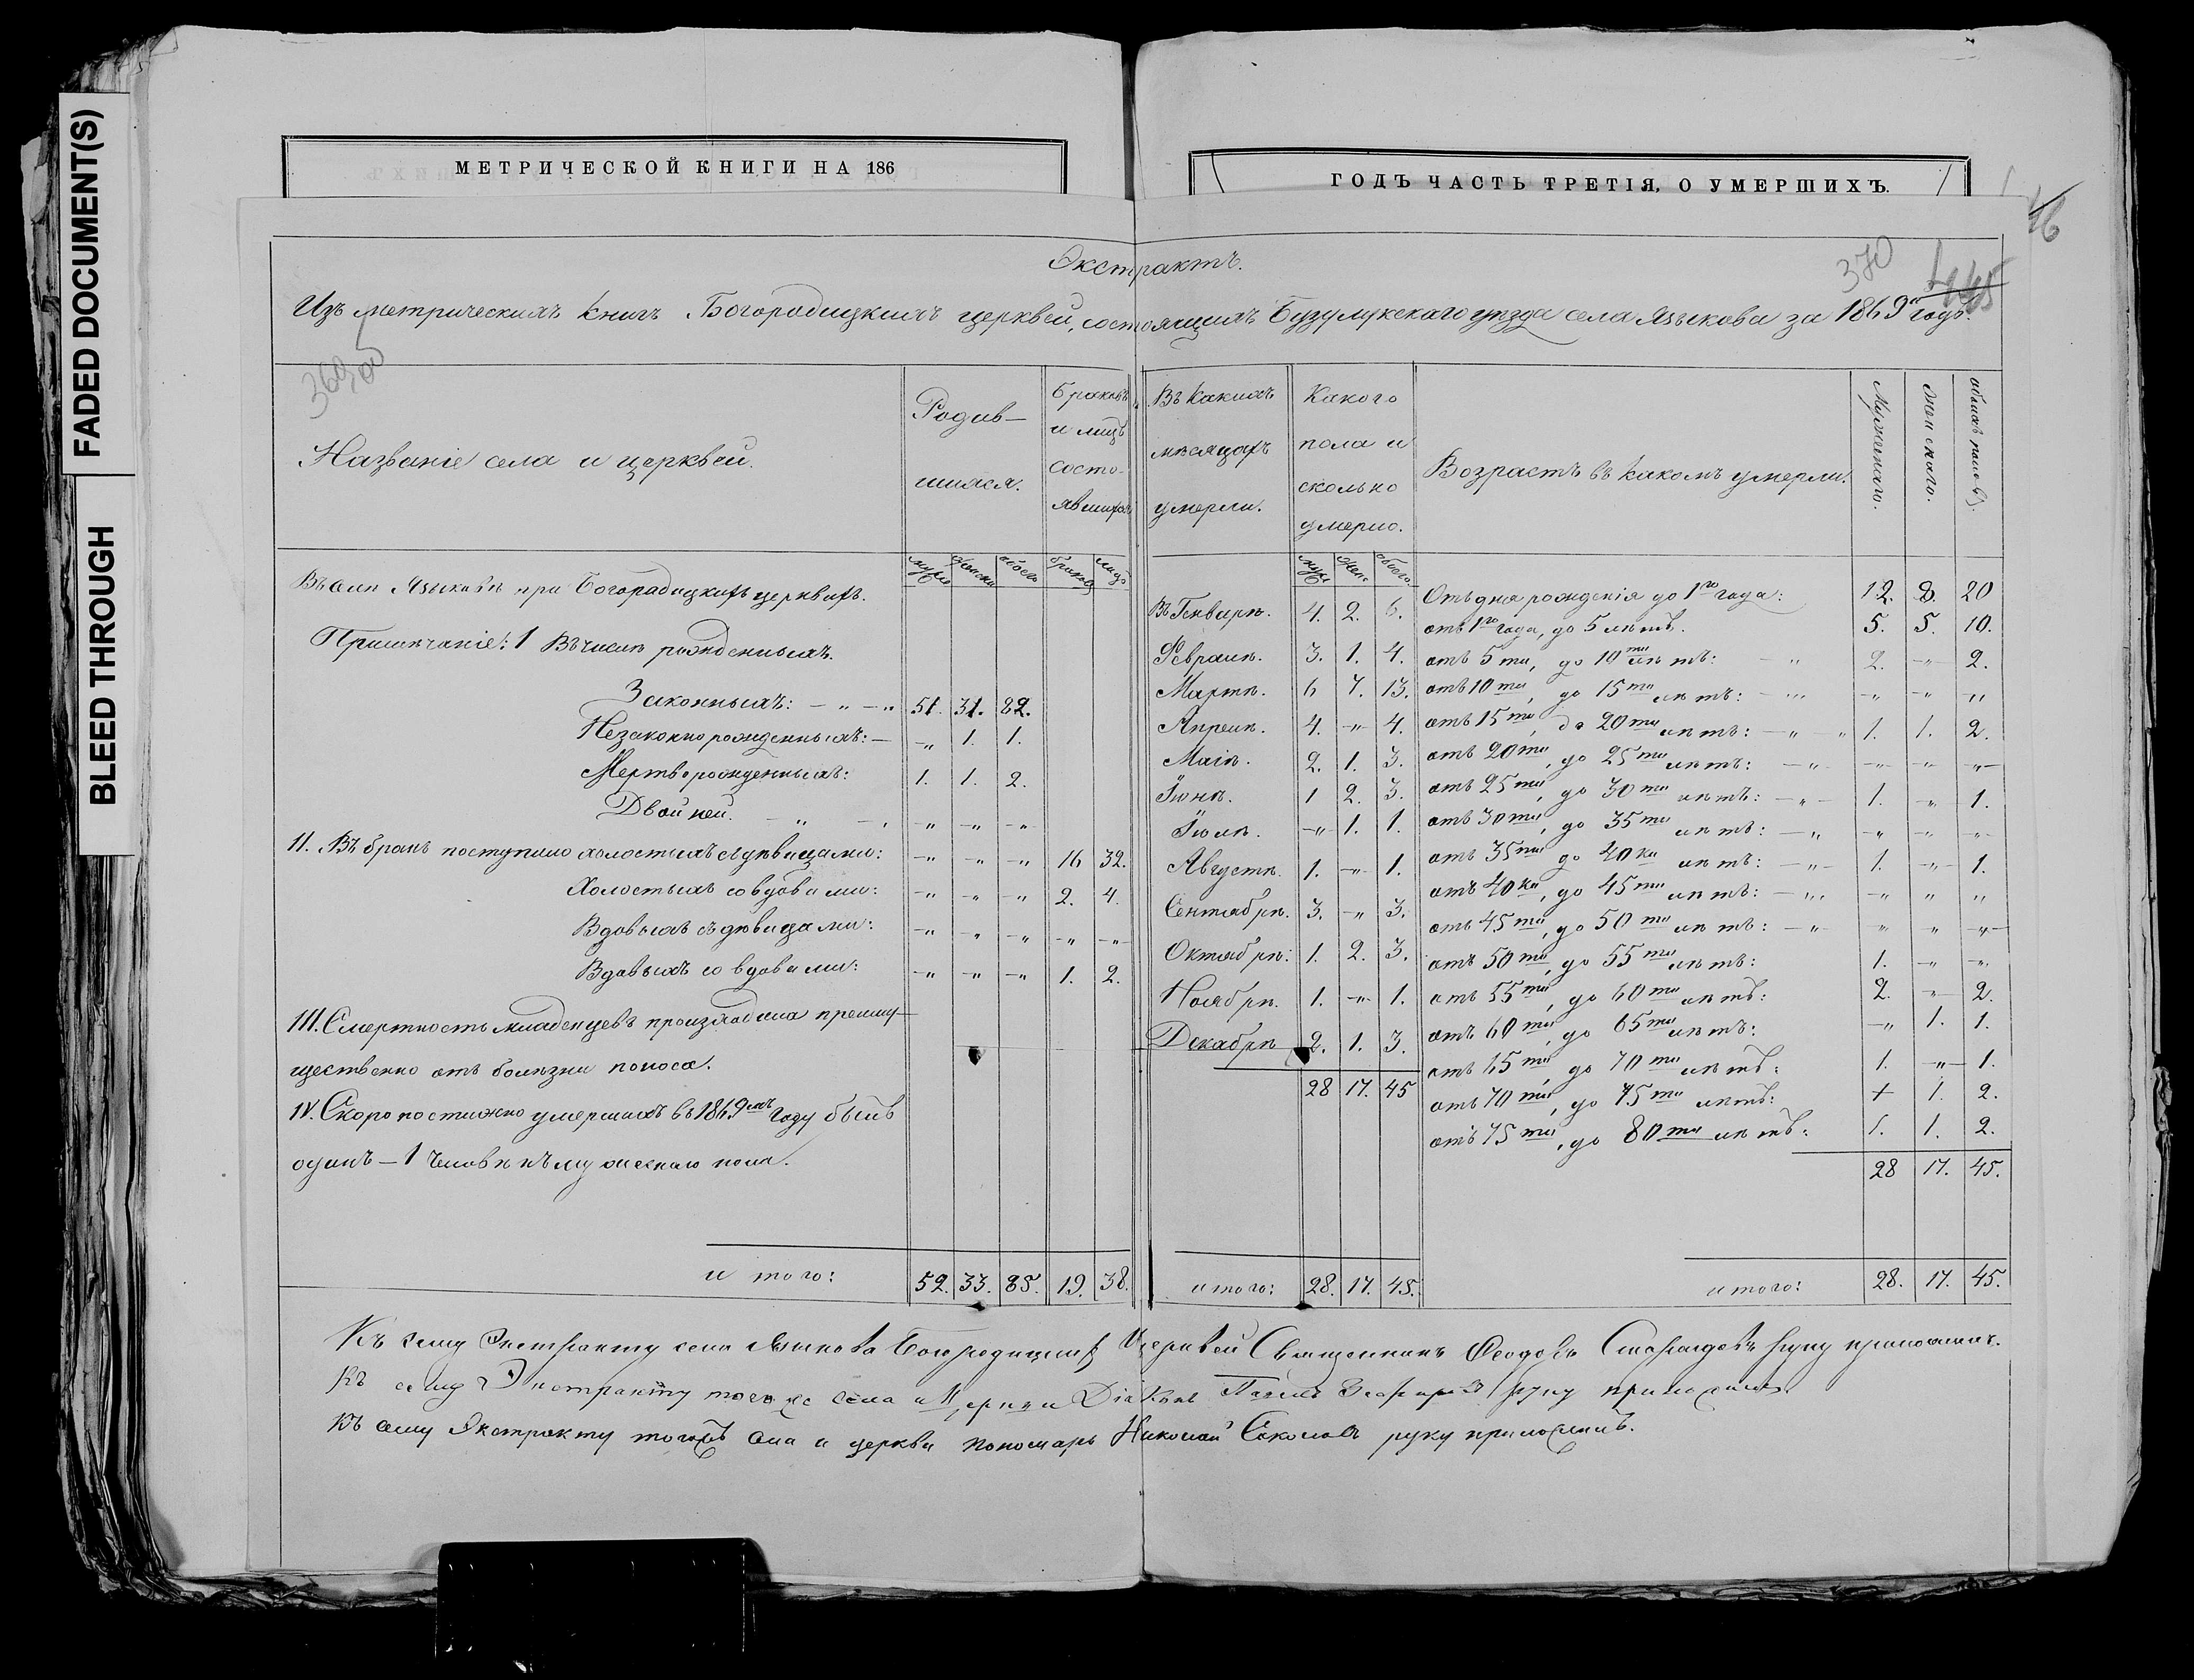 FADED DOCUMENT(S)
BLEED THROUGH
МЕТРИЧЕСКОЙ КНИГИ НА 186
ГОДЪ ЧАСТЬ ТРЕТІЯ, О УМЕРШИХЪ.
46
370
445
Экстрактъ.
Изъ метрическихъ книгъ Богородицкихъ церквей, состоящихъ Бузулукскаго уѣзда села Языкова за 1869й годъ.
369,об
Названіе села и церквей.
Родив-
шихся.
Браковъ
и лицъ
состо-
явшихся
Въ какихъ
мѣсяцахъ
умерли.
Какого
пола и
сколько
умерло.
Возрастъ въ какомъ умерли.
Мужескаго.
Женскаго.
обоихъ половъ.
муже женска обоего браковъ лицъ
муже жен. обоего.
Въ селѣ Языковѣ при Богородицкихъ церквахъ.
Примѣчаніе: 1 Въ числѣ рожденныхъ.
Законныхъ: — „ — „ 51. 31. 82.
Незаконнорожденныхъ: — -„ 1. 1.
Мертворожденныхъ: 1. 1. 2.
Двойней. — „ — -„- -„- -„-
II. Въ бракъ поступило холостыхъ съ дѣвицами: -„- -„- -„- 16 32.
Холостыхъ со вдовами: -„- -„- -„- 2. 4.
Вдовыхъ съ дѣвицами: -„- „ -„- -„- -„-
Вдовыхъ со вдовами: -„- -„- -„- 1. 2.
III. Смертность младенцевъ происходила преиму-
щественно отъ болѣзни поноса.
IV. Скоропостижно умершихъ въ 1869мъ году былъ
одинъ — 1 человѣкъ мужескаго пола.
и того: 52. 33. 85. 19. 38.
Въ Генварѣ. 4. 2. 6.
Февралѣ. 3. 1. 4.
Мартѣ. 6 7. 13.
Апрелѣ. 4. -„- 4.
Маіѣ. 2. 1. 3.
Іюнѣ. 1 2. 3.
Іюлѣ. -„- 1. 1.
Августѣ. 1. -„- 1.
Сентябрѣ. 3. -„ 3.
Октябрѣ: 1. 2. 3.
Ноябрѣ. 1. -„- 1.
Декабрѣ 2. 1. 3.
28 17. 45
итого: 28. 17. 45.
Отъ дня рожденія до 1го года: 12. 8. 20
отъ 1го года, до 5 лѣтъ. 5. 5. 10.
отъ 5ти, до 10ти лѣтъ: — „ 2. -„- 2.
отъ 10ти, до 15ти лѣтъ: — „ -„ -„ „
отъ 15ти, до 20ти лѣтъ: — „ — „ 1. 1. 2.
отъ 20ти, до 25ти лѣтъ: — „ -„- -„- -„-
отъ 25ти, до 30ти лѣтъ: — „ — 1. -„- 1.
отъ 30ти, до 35ти лѣтъ: — „ -„- -„- -„-
отъ 35ти до 40ка лѣтъ: — „ — 1. -„- 1.
отъ 40ка, до 45ти лѣтъ: — „ -„ „ „
отъ 45ти, до 50ти лѣтъ: — „ — „ „ -„-
отъ 50ти, до 55ти лѣтъ: 1. -„- -„-
отъ 55ти, до 60ти лѣтъ: 2. -„- 2.
отъ 60ти, до 65ти лѣтъ: -„ 1. 1.
отъ 65ти, до 70ти лѣтъ: 1. -„- 1.
отъ 70ти, до 75ти лѣтъ: 1 1. 2.
отъ 75ти, до 80ти лѣтъ: 1. 1. 2.
28 17. 45.
итого: 28. 17. 45.
Къ сему Экстракту села Языкова Богородицкихъ Церквей Священникъ Ѳеодоръ руку приложилъ.
Къ сему Экстракту того же села и Церкви Діаконъ Павелъ руку приложилъ
Къ сему Экстракту тогожъ села и церкви пономарь Николай Соколовъ руку приложилъ.